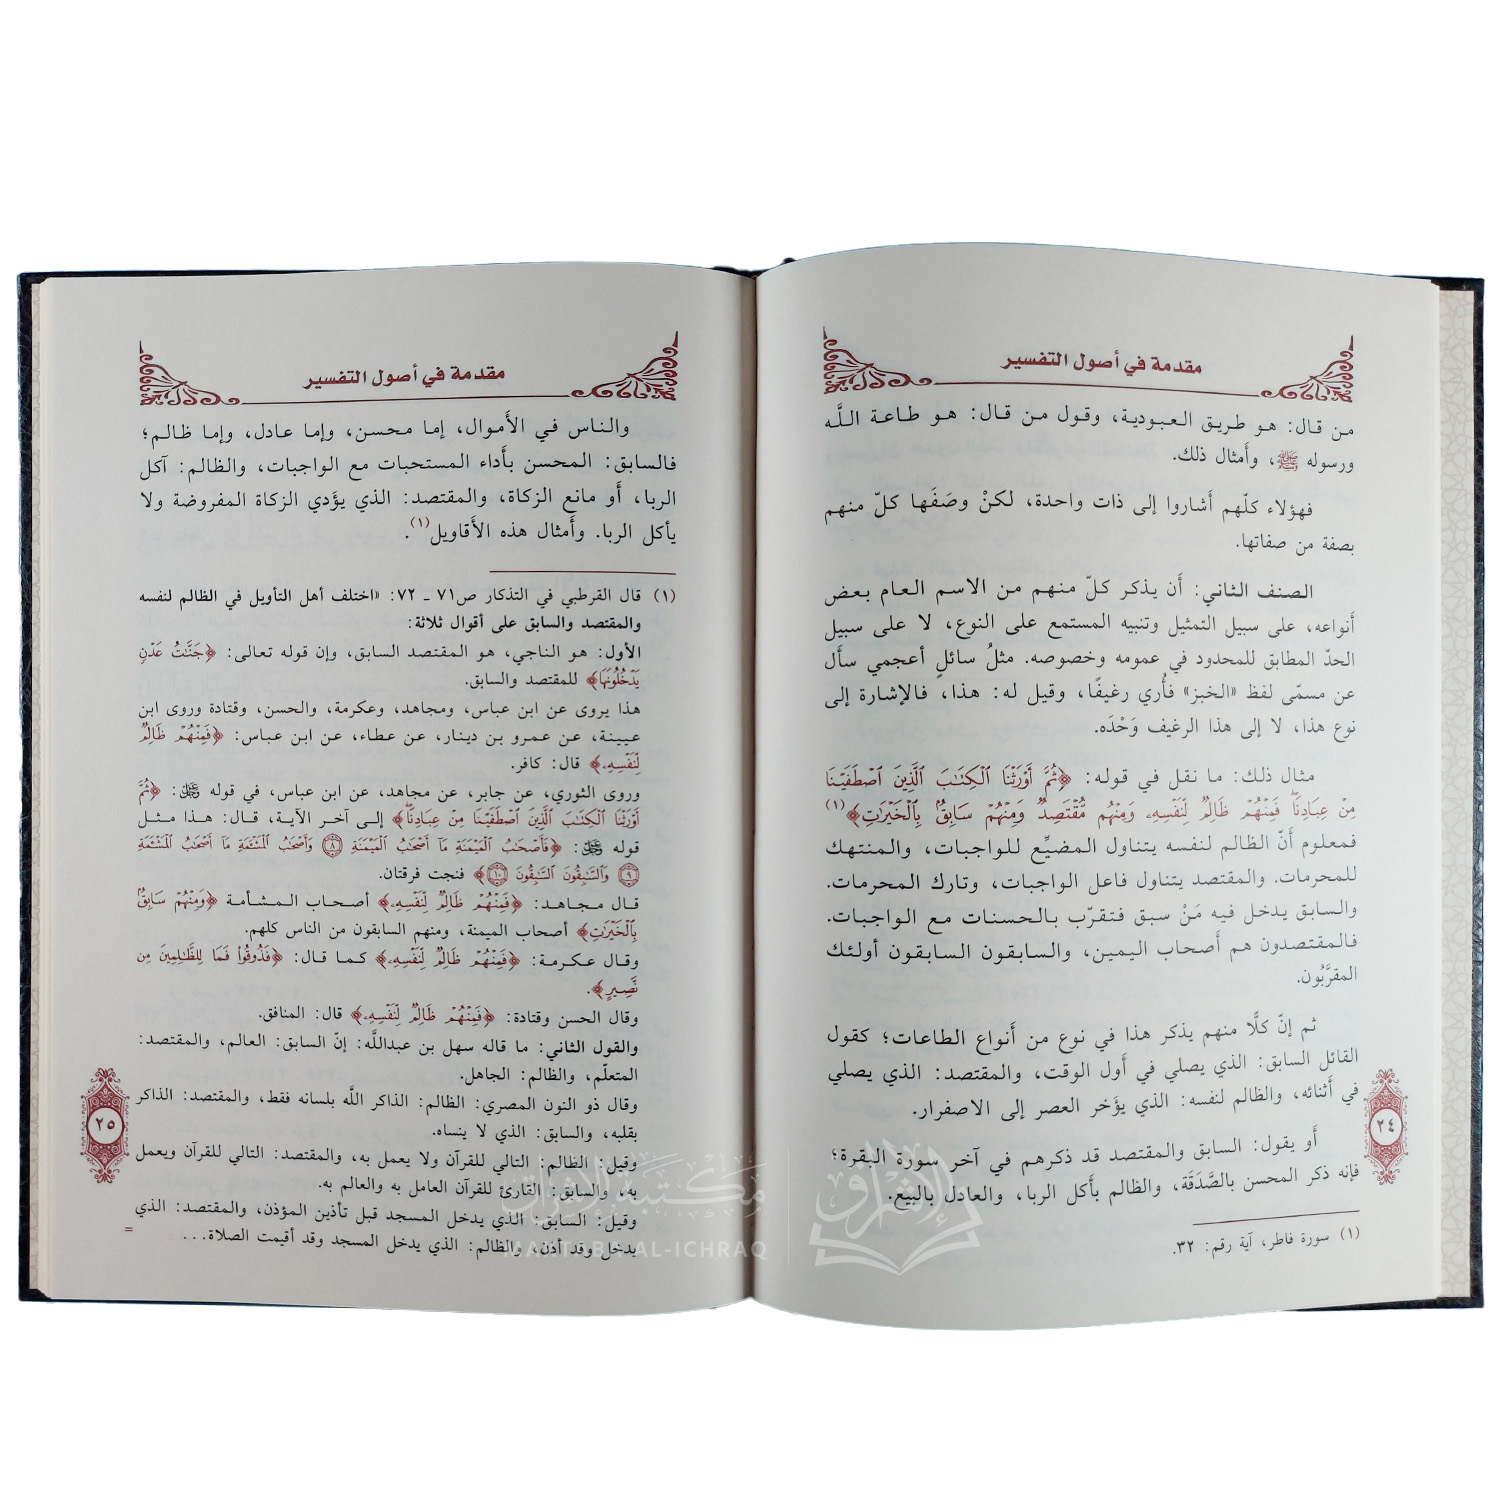 مقدمة في أصول التفسير
من قال: هو طريق العبودية، وقول من قال: هو طاعة اللَّه
ورسوله ﷺ، وأمثال ذلك.
فهؤلاء كلّهم أشاروا إلى ذات واحدة، لكنْ وصَفَها كلّ منهم
بصفة من صفاتها.
الصنف الثاني: أن يذكر كلّ منهم من الاسم العام بعض
أنواعه، على سبيل التمثيل وتنبيه المستمع على النوع، لا على سبيل
الحدّ المطابق للمحدود في عمومه وخصوصه. مثلُ سائلٍ أعجمي سأل
عن مسمّى لفظ «الخبز» فأُري رغيفًا، وقيل له: هذا، فالإشارة إلى
نوع هذا، لا إلى هذا الرغيف وَحْدَه.
مثال ذلك: ما نقل في قوله: ﴿ثُمَّ أَوْرَثْنَا ٱلْكِتَٰبَ ٱلَّذِينَ ٱصْطَفَيْنَا
مِنْ عِبَادِنَا ۖ فَمِنْهُمْ ظَالِمٌ لِّنَفْسِهِۦ وَمِنْهُم مُّقْتَصِدٌ وَمِنْهُمْ سَابِقٌۢ بِٱلْخَيْرَٰتِ﴾(١)
فمعلوم أنّ الظالم لنفسه يتناول المضيِّع للواجبات، والمنتهك
للمحرمات. والمقتصد يتناول فاعل الواجبات، وتارك المحرمات.
والسابق يدخل فيه مَنْ سبق فتقرّب بالحسنات مع الواجبات.
فالمقتصدون هم أصحاب اليمين، والسابقون السابقون أولئك
المقرَّبُون.
ثم إنّ كلًّا منهم يذكر هذا في نوع من أنواع الطاعات؛ كقول
القائل السابق: الذي يصلي في أول الوقت، والمقتصد: الذي يصلي
في أثنائه، والظالم لنفسه: الذي يؤخر العصر إلى الاصفرار.
أو يقول: السابق والمقتصد قد ذكرهم في آخر سورة البقرة؛
فإنه ذكر المحسن بالصَّدَقَة، والظالم بأكل الربا، والعادل بالبيع.
(١) سورة فاطر، آية رقم: ٣٢.
٢٤
مقدمة في أصول التفسير
والناس في الأموال، إما محسن، وإما عادل، وإما ظالم؛
فالسابق: المحسن بأداء المستحبات مع الواجبات، والظالم: آكل
الربا، أو مانع الزكاة، والمقتصد: الذي يؤدي الزكاة المفروضة ولا
يأكل الربا. وأمثال هذه الأقاويل(١).
(١) قال القرطبي في التذكار ص٧١ ـ ٧٢: «اختلف أهل التأويل في الظالم لنفسه
والمقتصد والسابق على أقوال ثلاثة:
الأول: هو الناجي، هو المقتصد السابق، وإن قوله تعالى: ﴿جَنَّٰتُ عَدْنٍ
يَدْخُلُونَهَا﴾ للمقتصد والسابق.
هذا يروى عن ابن عباس، ومجاهد، وعكرمة، والحسن، وقتادة وروى ابن
عيينة، عن عمرو بن دينار، عن عطاء، عن ابن عباس: ﴿فَمِنْهُمْ ظَالِمٌ
لِّنَفْسِهِۦ﴾ قال: كافر.
وروى الثوري، عن جابر، عن مجاهد، عن ابن عباس، في قوله ﷻ: ﴿ثُمَّ
أَوْرَثْنَا ٱلْكِتَٰبَ ٱلَّذِينَ ٱصْطَفَيْنَا مِنْ عِبَادِنَا﴾ إلى آخر الآية، قال: هذا مثل
قوله ﷻ: ﴿فَأَصْحَٰبُ ٱلْمَيْمَنَةِ مَآ أَصْحَٰبُ ٱلْمَيْمَنَةِ ٨ وَأَصْحَٰبُ ٱلْمَشْـَٔمَةِ مَآ أَصْحَٰبُ ٱلْمَشْـَٔمَةِ
٩ وَٱلسَّٰبِقُونَ ٱلسَّٰبِقُونَ ١٠﴾ فنجت فرقتان.
قال مجاهد: ﴿فَمِنْهُمْ ظَالِمٌ لِّنَفْسِهِۦ﴾ أصحاب المشأمة ﴿وَمِنْهُمْ سَابِقٌۢ
بِٱلْخَيْرَٰتِ﴾ أصحاب الميمنة، ومنهم السابقون من الناس كلهم.
وقال عكرمة: ﴿فَمِنْهُمْ ظَالِمٌ لِّنَفْسِهِۦ﴾ كما قال: ﴿فَذُوقُوا۟ فَمَا لِلظَّٰلِمِينَ مِن
نَّصِيرٍ﴾.
وقال الحسن وقتادة: ﴿فَمِنْهُمْ ظَالِمٌ لِّنَفْسِهِۦ﴾ قال: المنافق.
والقول الثاني: ما قاله سهل بن عبداللَّه: إنّ السابق: العالم، والمقتصد:
المتعلّم، والظالم: الجاهل.
وقال ذو النون المصري: الظالم: الذاكر اللَّه بلسانه فقط، والمقتصد: الذاكر
بقلبه، والسابق: الذي لا ينساه.
وقيل: الظالم: التالي للقرآن ولا يعمل به، والمقتصد: التالي للقرآن ويعمل
به، والسابق: القارئ للقرآن العامل به والعالم به.
وقيل: السابق: الذي يدخل المسجد قبل تأذين المؤذن، والمقتصد: الذي
يدخل وقد أذن، والظالم: الذي يدخل المسجد وقد أقيمت الصلاة... =
٢٥
مكتبة الإشراق
MAKTABA AL-ICHRAQ
الإشراق